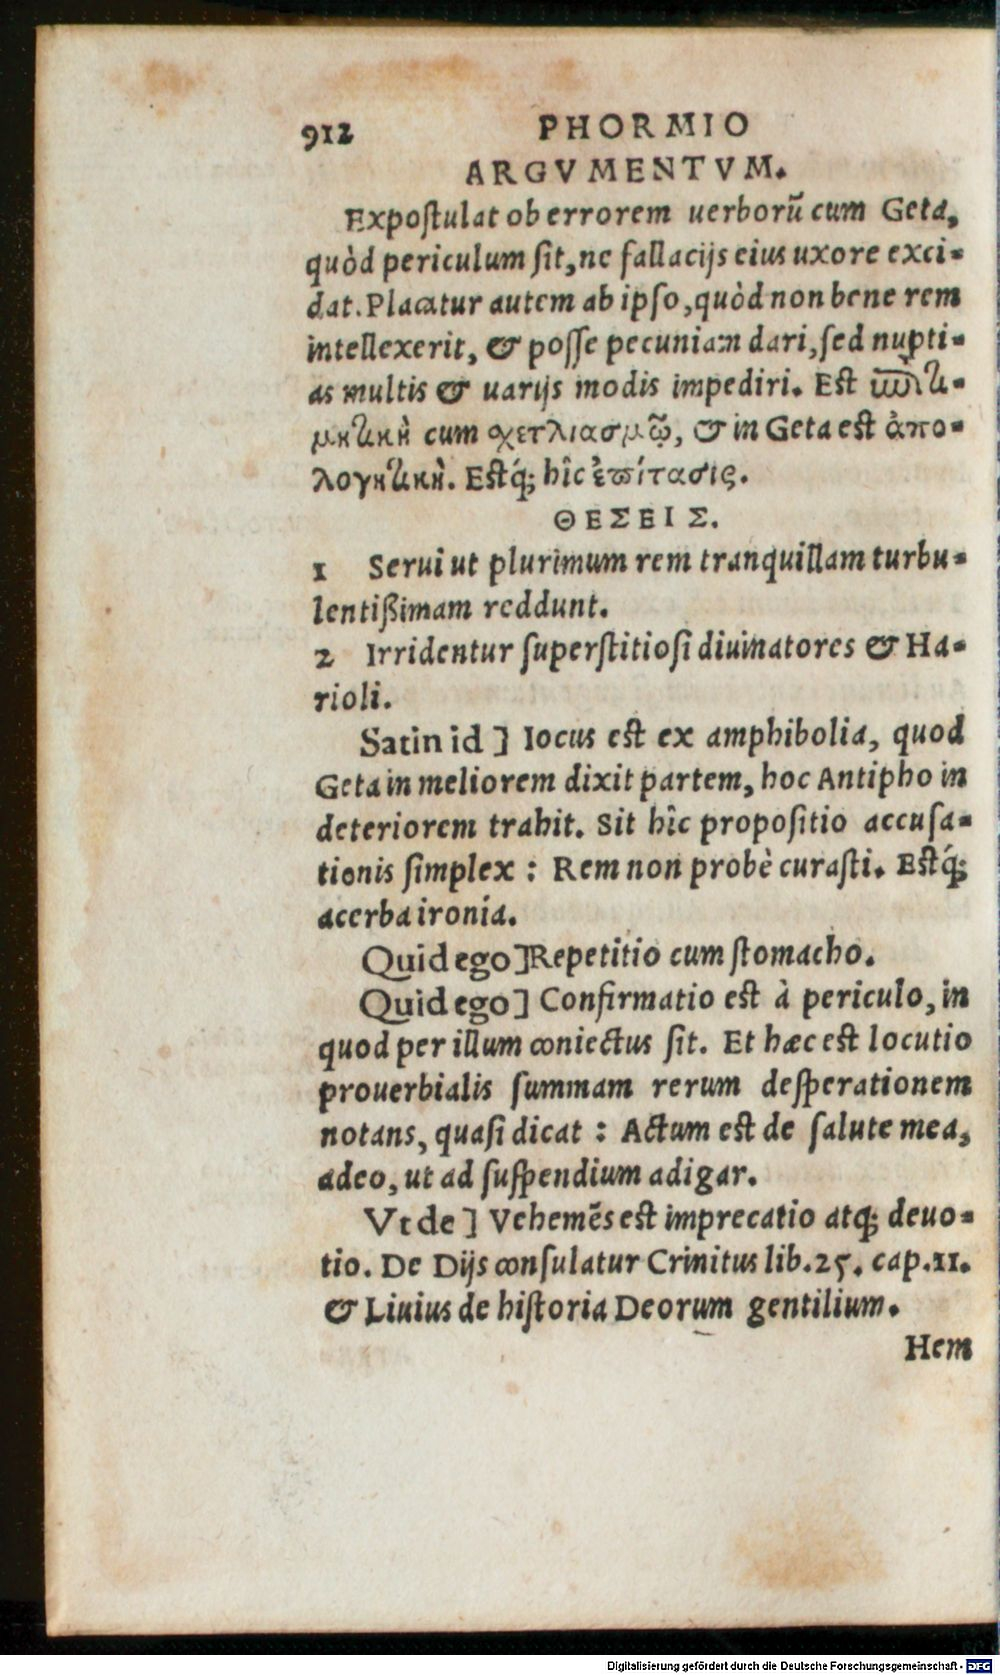 912 PHORMIO
ARGVMENTVM.
Expoſtulat ob errorem uerborũ cum Geta,
quòd periculum ſit, ne fallacijs eius uxore exci-
dat. Placatur autem ab ipſo, quòd non bene rem
intellexerit, & poſſe pecuniam dari, ſed nupti-
as multis & uarijs modis impediri. Est ἐπιτι-
μητικὴ cum σχετλιασμῷ, & in Geta est ἀπο-
λογητικὴ. Estq́; hîc ἐπίτασις.
ΘΕΣΕΙΣ.
1 Serui ut plurimum rem tranquillam turbu-
lentißimam reddunt.
2 Irridentur ſuperſtitioſi diuinatores & Ha-
rioli.
Satin id] Iocus est ex amphibolia, quod
Geta in meliorem dixit partem, hoc Antipho in
deteriorem trahit. Sit hîc propoſitio accuſa-
tionis ſimplex : Rem non probè curaſti. Estq́;
acerba ironia.
Quid ego] Repetitio cum ſtomacho.
Quid ego] Confirmatio est à periculo, in
quod per illum coniectus ſit. Et hæc est locutio
prouerbialis ſummam rerum deſperationem
notans, quaſi dicat : Actum est de ſalute mea,
adeo, ut ad ſuſpendium adigar.
Vt de] Vehemẽs est imprecatio atq; deuo-
tio. De Dijs conſulatur Crinitus lib. 25. cap. 11.
& Liuius de hiſtoria Deorum gentilium.
Hem
Digitalisierung gefördert durch die Deutsche Forschungsgemeinschaft - DFG